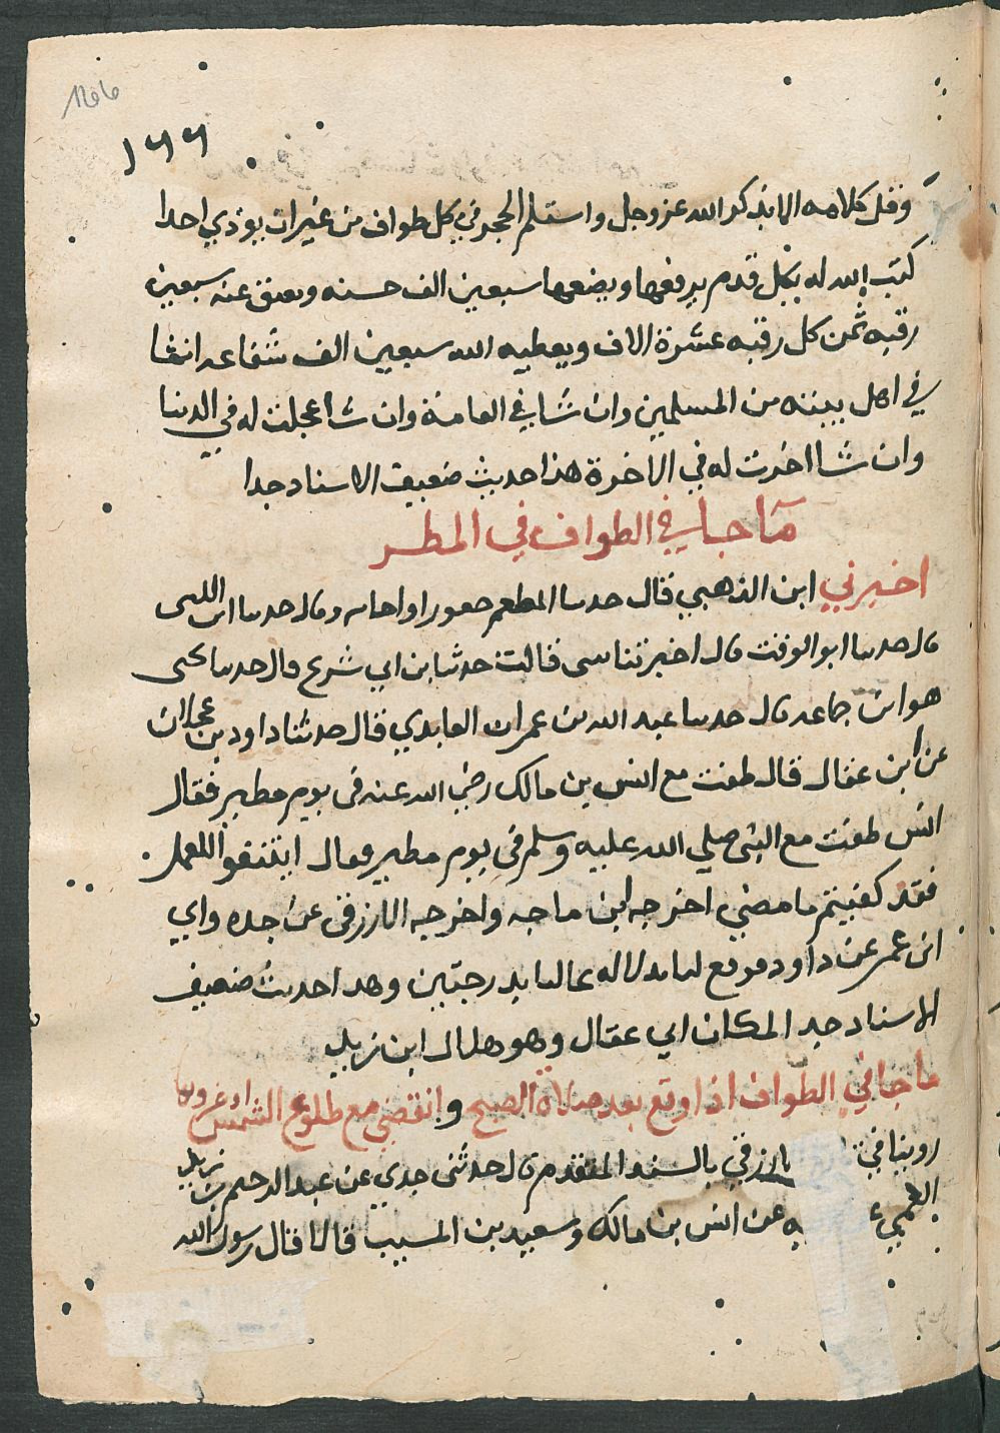 ١٦٦
وقل كلامه الا بذكر الله عز وجل واستلم الحجر في كل طواف من غيران يوذي احدا
كتب الله له بكل قدم يرفعها ويضعها سبعين الف حسنه ويعتق عنه سبعين
رقبه ثمن كل رقبه عشرة الاف ويعطيه الله سبعين الف شفاعه ان شا
في اهل بيته من المسلمين وان شا في العامة وان شا عجلت له في الدنيا
وان شا اخرت له في الاخرة هذا حديث ضعيف الاسناد جدا
ما جا في الطواف في المطر
اخبرني ابن الذهبي قال حدثنا المطعم حضورا واجازه وقال حدثنا ابن اللتي
قال حدثنا ابو الوقت قال اخبرتنا بيبى قالت حدثنا ابن ابي شريح قال حدثنا يحيى
هو ابن صاعد قال حدثنا عبد الله بن عمران العابدي قال حدثنا داود بن عجلان
عن ابن عقال قال طفت مع انس بن مالك رضي الله عنه في يوم مطير فقال
انس طفت مع النبي صلي الله عليه وسلم في يوم مطير فقال ايتنفوا العمل
فقد كفيتم ما مضي اخرجه ابن ماجه واخرجه الازرقي عن جده وابي
ابن عمر عن داود فوقع لنا بدلا له عاليا بدرجتين وهذا حديث ضعيف
الاسناد جدا لمكان ابي عقال وهو هلال ابن زيد
ما جا في الطواف اذا وقع بعد صلاة الصبح وانقضي مع طلوع الشمس او غروبها
روينا في ازرقي بالسند المتقدم قال حدثني جدي عن عبد الرحيم بن زيد
العمي عن انس بن مالك وسعيد بن المسيب قالا قال رسول الله